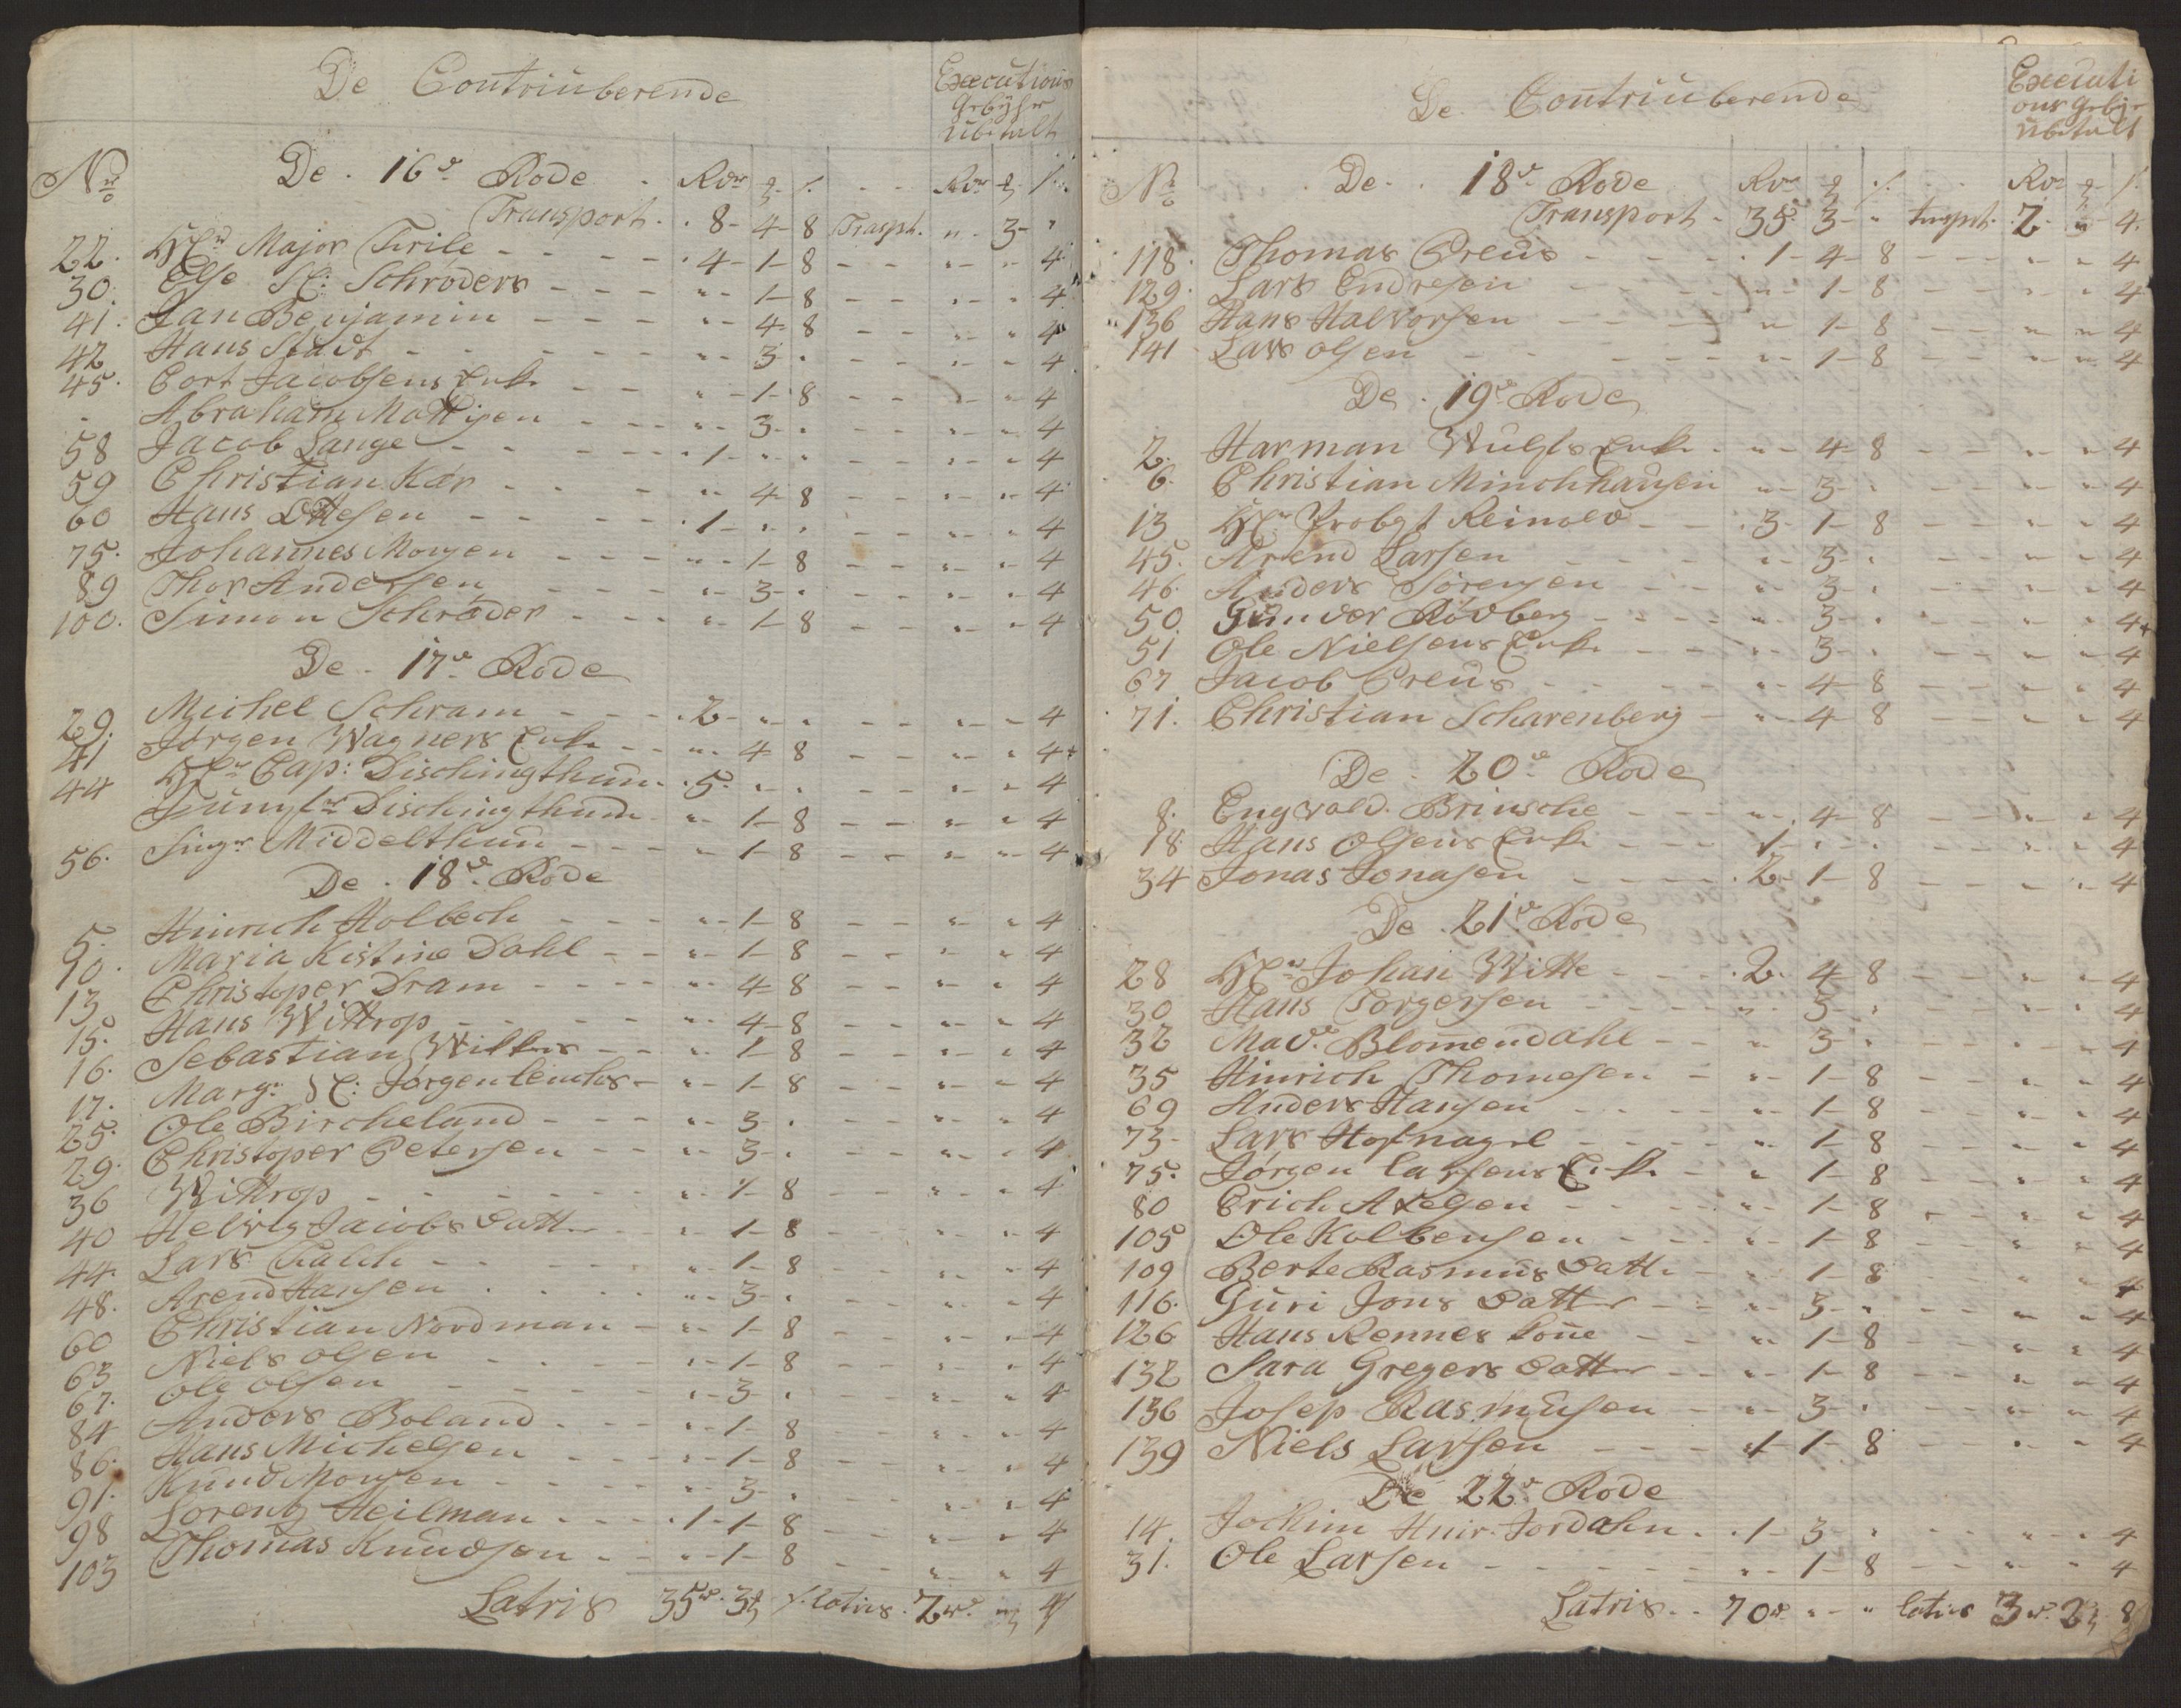 De Contriuberende
Executions
Gebyhr
ubetalt
No De 16de Rode Rdr ß Rdr ß
Transport 8 - 4 - 8 Traspt. " 3 - "
22. Hr Major Trile - 4 - 1 - 8 - - " - " 4
30. Else Sl: Schröders - " - 1 - 8 - - " - " 4
41. Jan Benjamin - " - 4 - 8 - - " - " 4
42 Hans Stadt - " - 3 - " - - " - " 4
45. Cort Jacobsens Enke - " - 1 - 8 - - " - " 4
- Abraham Mattisen - " - 3 - " - - " - " 4
58 Jacob Lange - 1 - " - " - - " - " 4
59 Christian Kær - " - 4 - 8 - - " - " 4
60 Hans Ottesen - 1 - " - " - - " - " 4
75. Johannes Monsen - " - 1 - 8 - - " - " 4
89 Thor Andersen - " - 3 - " - - " - " 4
100. Simon Schrøder - " - 1 - 8 - - " - " 4
De 17de Rode
29. Michel Schram - 2 - " - " - - " - " 4
41 Jørgen Wagners Enke - " - 4 - 8 - - " - " 4
44 Hr Cap: Dischingthum - 5 - " - " - - " - " 4
Jumfr Dischingthum - " - 1 - 8 - - " - " 4
56. Singr Middelthun - " - 1 - 8 - - " - " 4
De 18de Rode
5. Hinrich Holbech - " - 1 - 8 - - " - " 4
10. Maria Kistine Dahl - " - 1 - 8 - - " - " 4
13 Christoper Dram - " - 4 - 8 - - " - " 4
15. Hans Wittrop - " - 4 - 8 - - " - " 4
16. Sebastian Wilkens - " - 1 - 8 - - " - " 4
17. Margr Sl: Jørgen lenchs - " - 1 - 8 - - " - " 4
25. Ole Bircheland - " - 3 - " - - " - " 4
29. Christoper Petersen - " - 3 - " - - " - " 4
36 Wittrop - " - 1 - 8 - - " - " 4
40 Helvig Jacobs Datt. - " - 1 - 8 - - " - " 4
44. Lars Falch - " - 1 - 8 - - " - " 4
48. Arend Hansen - " - 3 - " - - " - " 4
60 Christian Nordman - " - 1 - 8 - - " - " 4
63 Niels Olsen - " - 1 - 8 - - " - " 4
67. Ole Olsen - " - 3 - " - - " - " 4
84 Anders Boland - " - 1 - 8 - - " - " 4
86. Hans Michelsen - " - 1 - 8 - - " - " 4
91. Knud Monsen - " - 3 - " - - " - " 4
98 Lorentz Heilman - 1 - 1 - 8 - - " - " 4
103 Thomas Knudsen - " - 1 - 8 - - " - " 4
Latris 35r. 3ß /. latris. 2r. " 4
De Contriuberende
Executi
ons gebyr
ubetalt
No De 18de Rode Rdr ß Rdr ß
Transport - 35 - 3 - " trnsprt. 2 - " 4.
118. Thomas Preus - 1 - 4 - 8 - - " - " 4
129. Lars Endresen - " - 1 - 8 - - " - " 4
136 Hans Halvorsen - " - 1 - 8 - - " - " 4
141 Lars Olsen - " - 1 - 8 - - " - " 4
De 19de Rode
2. Harman Wulfs Enke - " - 4 - 8 - - " - " 4
6. Christian Minchhausen - " - 3 - " - - " - " 4
13 Hr Probst Reinold - 3 - 1 - 8 - - " - " 4
45. Arend Larsen - " - 3 - " - - " - " 4
46. Anders Sørensen - " - 3 - " - - " - " 4
50. Gunder Rødberg - " - 3 - " - - " - " 4
51 Ole Nielsens Enke - " - 3 - " - - " - " 4
67 Jacob Preus - " - 4 - 8 - - " - " 4
71. Christian Scharenberg - " - 4 - 8 - - " - " 4
De 20de Rode
8. Engvold Brinsche - " - 4 - 8 - - " - " 4
18. Hans Olsens Enke - 1 - " - " - - " - " 4
34 Jonas Jonasen - 2 - 1 - 8 - - " - " 4
De 21de Rode
28 Hr Johan Witte - 2 - 4 - 8 - - " - " 4
30 Hans Torgersen - " - 3 - " - - " - " 4
32 Made Blomendahl - " - 3 - " - - " - " 4
35 Hinrich Thomesen - " - 1 - 8 - - " - " 4
69 Anders Hansen - " - 1 - 8 - - " - " 4
73 - Lars Hofnagel - " - 1 - 8 - - " - " 4
75. Jørgen Larsens Enk. - " - 1 - 8 - - " - " 4
80 Erich Axelsen - " - 1 - 8 - - " - " 4
105 Ole Kolbensen - " - 1 - 8 - - " - " 4
109 Berte Rasmus Datt. - " - 1 - 8 - - " - " 4
116. Guri Jons Datter - " - 3 - " - - " - " 4
126 Hans Rennes Kone - " - 1 - 8 - - " - " 4
132 Sara Gregers Datter - " - 1 - 8 - - " - " 4
136 Josep Rasmusen - " - 3 - " - - " - " 4
139 Niels Larsen - 1 - 1 - 8 - - " - " 4
De 22de Rode
14. Jochim Hinr. Jordahn - 1 - 3 - " - - " - " 4
31. Ole Larsen - " - 1 - 8 - - " - " 4
Latris - 70r. - " - " latris 3r. 2ß 8